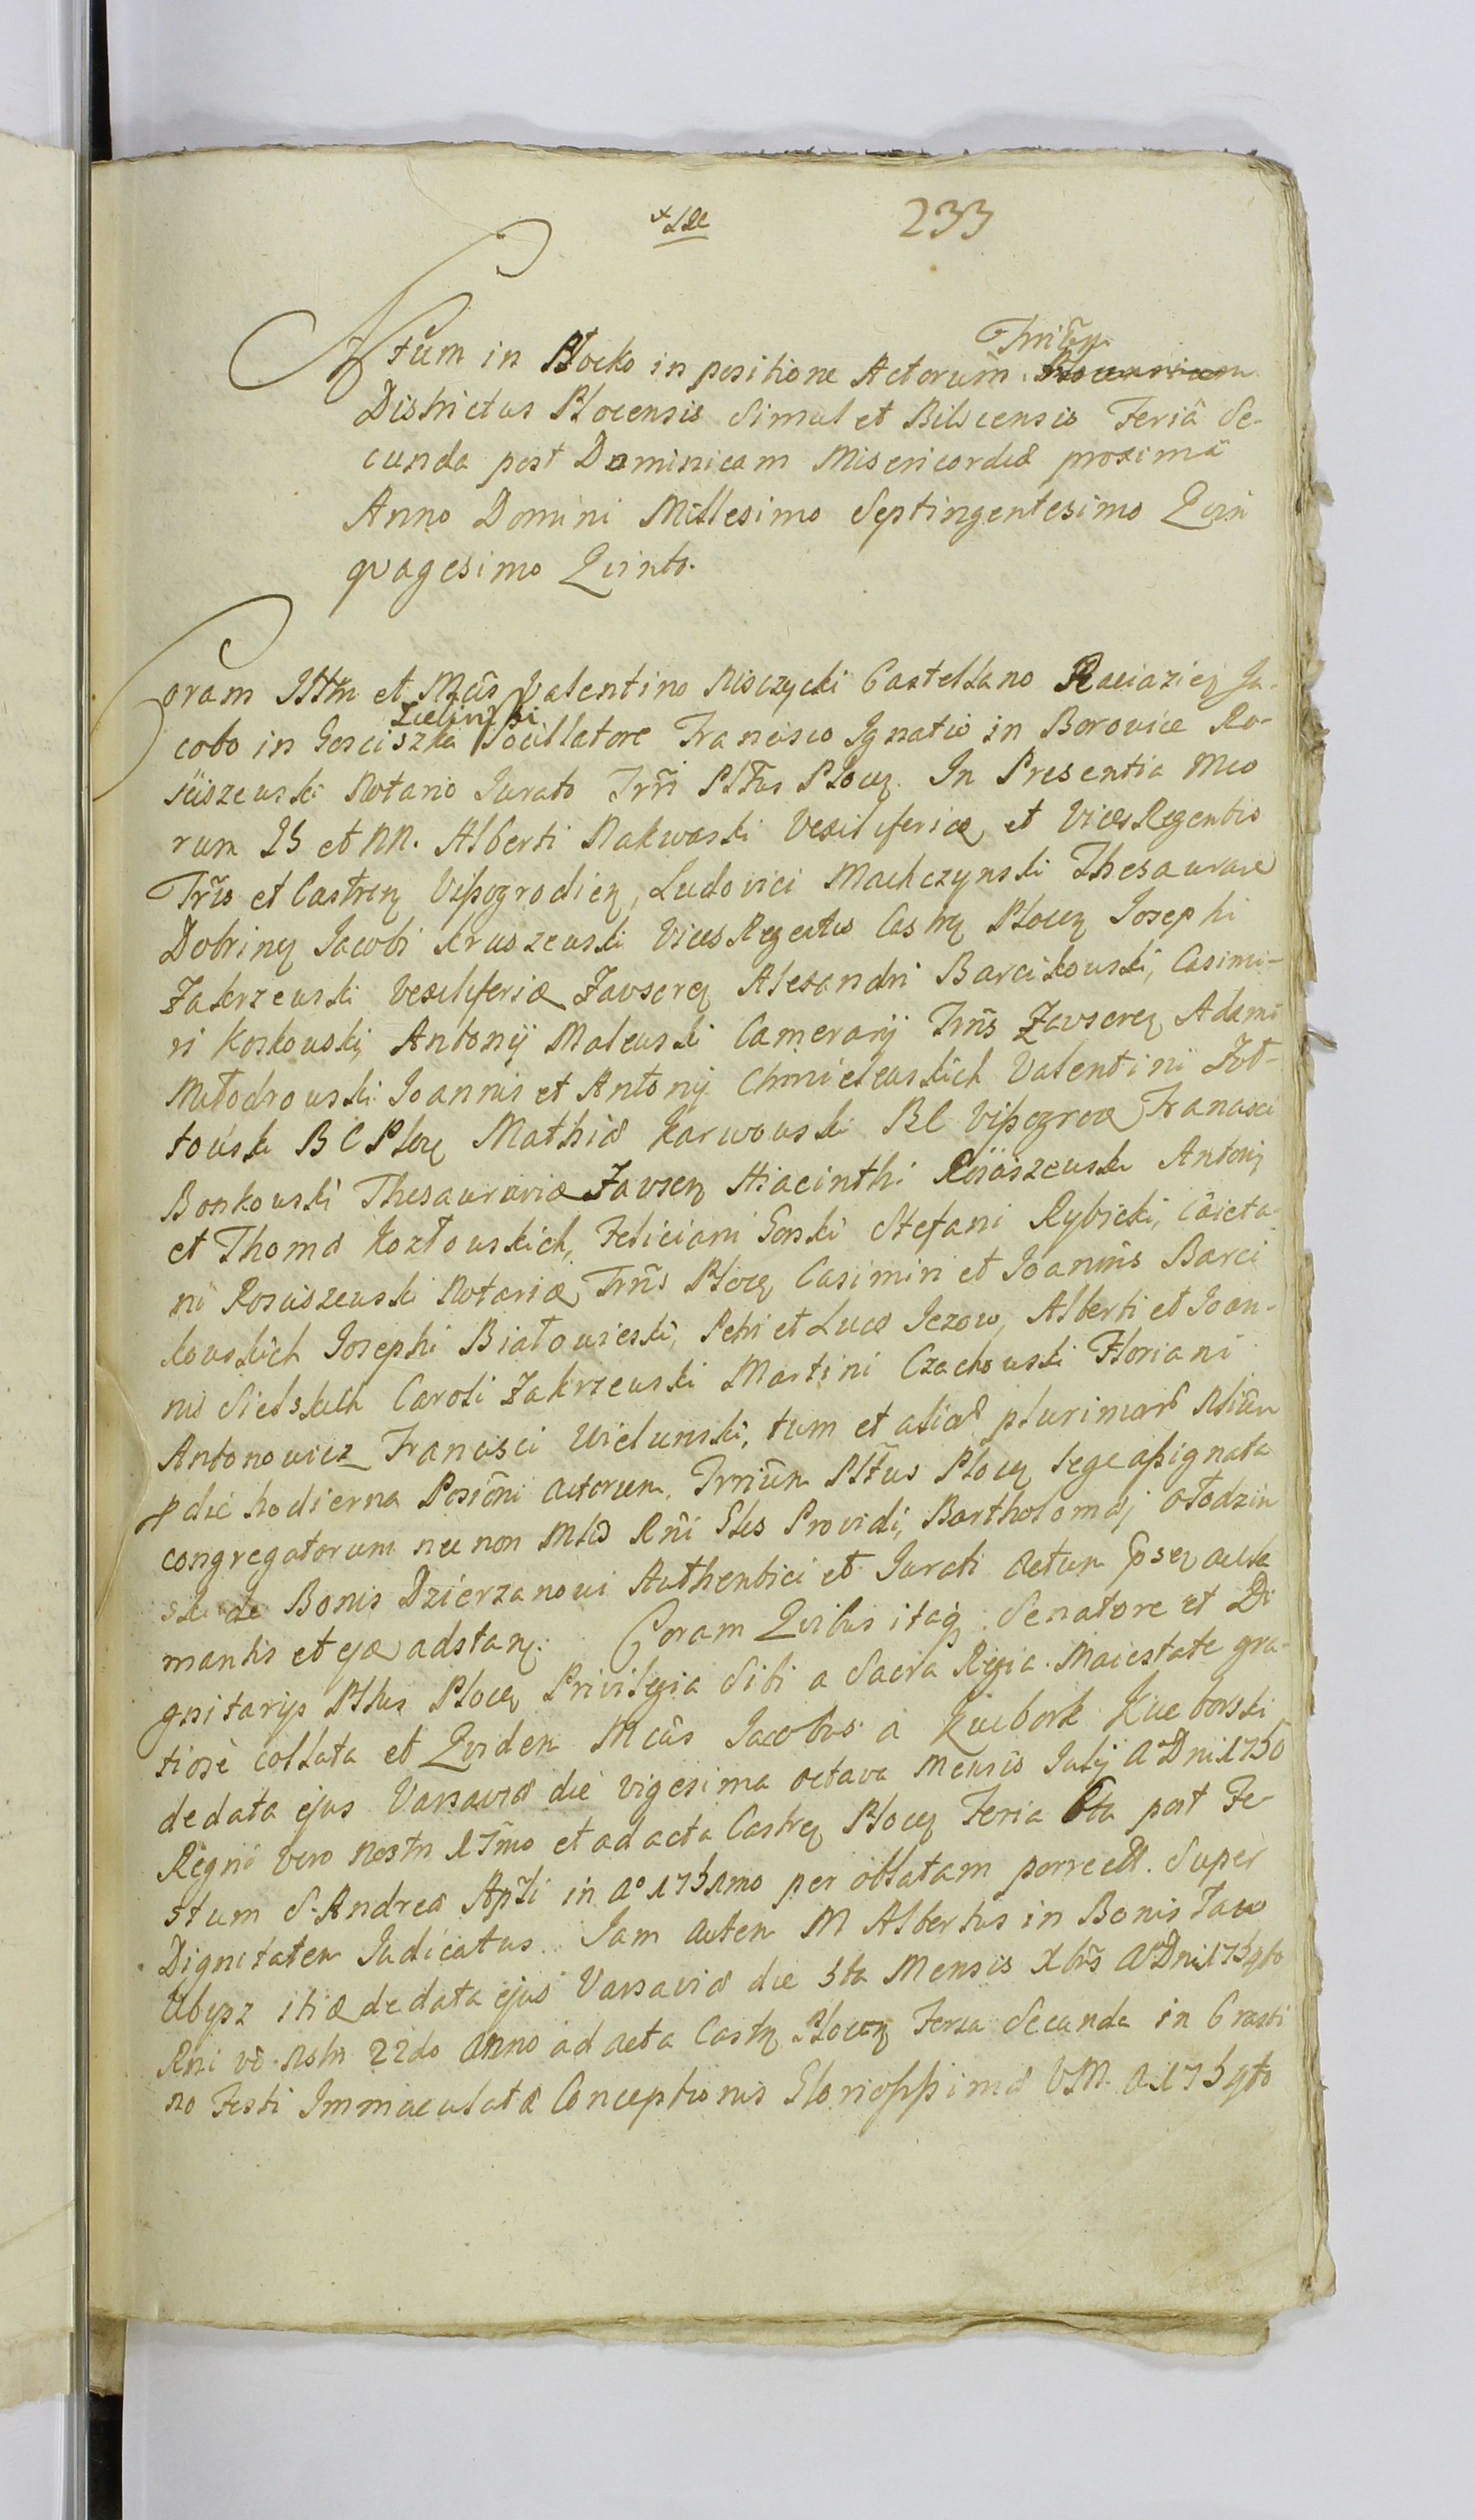 233
Actum in Plocko in positione Actorum Trrium Plocensium
Districtus Plocensis Simul et Bilscensis Feriâ Se-
cunda post Dominicam Misericordiæ proximâ
Anno Domini Millesimo Septingentesimo Quin
quagesimo Quinto.
Coram Illtri et Mcis Valentino Nisczycki Castellano Raciązieñ Ja-
cobo in Gosciszka Zielinski Pocillatore Francisco Ignatio in Borowice Ro-
sciszewski Notario Jurato Trri Pltus Plocen. In Presentia Mco
rum IS et NN. Alberti Nakwaski Vexiliferidæ et Vices Regentis
Trris et Castren Vissogrodien, Ludovici Machczynski Thesaurariæ
Dobrinen Jacobi Kruszewski Vices Regentis Castren Plocen Josephi
Zakrzewski Vexiliferidæ Zavscren Alexandri Barcikowski, Casimi-
ri Koskowski Antonij Malewski Camerarij Trris Zavscren Adami
Młodzowski Joannis et Antonij Chmielewskich Valentini Zoł-
towski B C Plocen Mathiæ Karwowski BC Vissogroden Francisci
Bonkowski Thesauraridæ Zavscren Hiacinthi Rosciszewski Antonij
et Thomæ Kozłowskich, Feliciani Gorski Stefani Rybicki, Caieta-
ni Rosciszewski Notaridæ Trris Plocen Casimiri et Joannis Barci
kowskich Josephi Białowieski, Petri et Lucæ Jezow, Alberti et Joan-
nis Sielskich Caroli Zakrzewski Martini Czachowski Floriani
Antonowicz Francisci Wielunski, tum et alior plurimor Nlium
p die hodierna Posioni Actorum Trrium Pltus Plocen lege assignata
congregatorum nec non Mlis Rni Glis Providi, Bartholomæi ołodzin
ski de Bonis Dzierzanowi Authentici et Jurati Actum psen aucla
mantis et ejdæ adstan. Coram Quibus itaq Senatore et Di
gnitarijs Pltus Plocen Privilegia Sibi a Sacra Regia Maiestate gra-
tiose collata et Quidem Mcus Jacobus a Kucbork Kucborski
de data ejus Varsaviæ die vigesima octava Mensis Julij A Dni 1750
Regni vero Nostri 17mo et ad acta Castren Plocen Feria 6ta post Fe
stum S. Andreæ Apli in Ao 1751mo per oblatam porrect. Super
Dignitatem Judicatus. Jam autem M Albertus in Bonis Tawo
Ubysz itidæ de data ejus Varsaviæ die 5ta Mensis Xbris A Dni 1754to
Rni vo Nstri 22do Anno ad acta Castren Plocen Feria Secunda in Crasti
no Festi Immaculatæ Conceptionis Gloriosissimæ VM. A 1754to